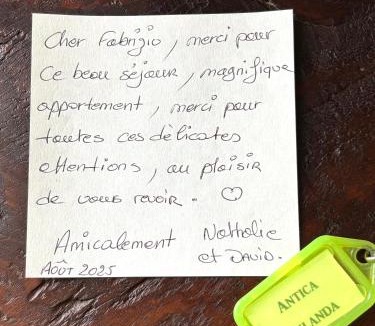 Cher Fabrizio, merci pour
Ce beau séjour, magnifique
appartement, merci pour
toutes ces délicates
attentions, au plaisir
de vous revoir. ♡
Amicalement Nathalie
et David.
Août 2025
ANTICA
LANDA